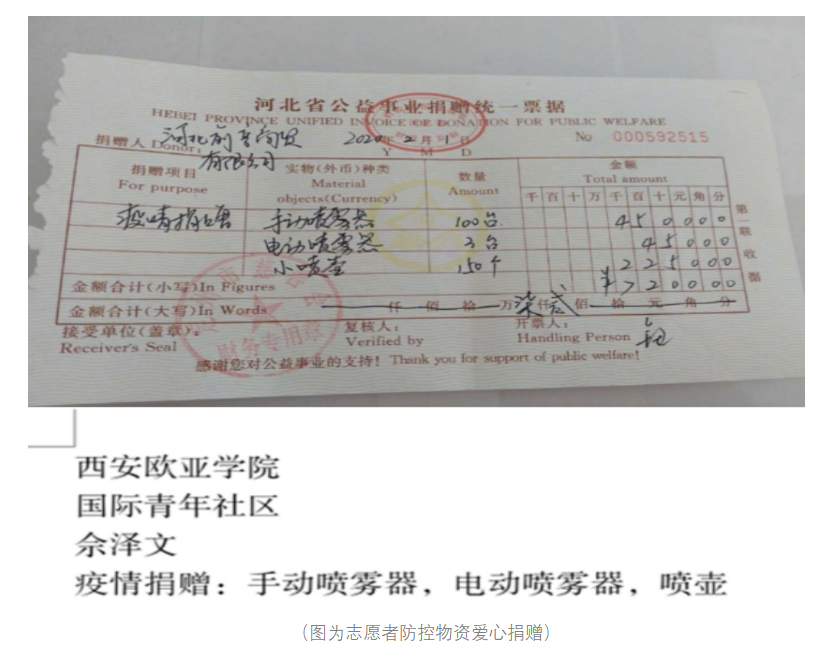 河北省公益事业捐赠统一票据
HEBEI PROVINCE UNIFIED INVOICE OF DONATION FOR PUBLIC WELFARE
捐赠人 Donor: 河北 商贸有限公司 2020年2月1日 No 000592515
Y M D
捐赠项目 实物(外币)种类 数量 金额
For purpose Material objects(Currency) Amount Total amount
千 百 十 万 千 百 十 元 角 分
疫情捐赠 手动喷雾器 100台 450000
电动喷雾器 3台 45000
小喷壶 150个 225000
金额合计(小写)In Figures ¥720000
金额合计(大写)In Words 仟 佰 拾 万 柒 仟 贰 佰 拾 元 角 分
第一联收据
接受单位(盖章): 复核人: 开票人:
Receiver's Seal Verified by Handling Person
财务专用章
感谢您对公益事业的支持! Thank you for support of public welfare!
西安欧亚学院
国际青年社区
佘泽文
疫情捐赠：手动喷雾器，电动喷雾器，喷壶
（图为志愿者防控物资爱心捐赠）